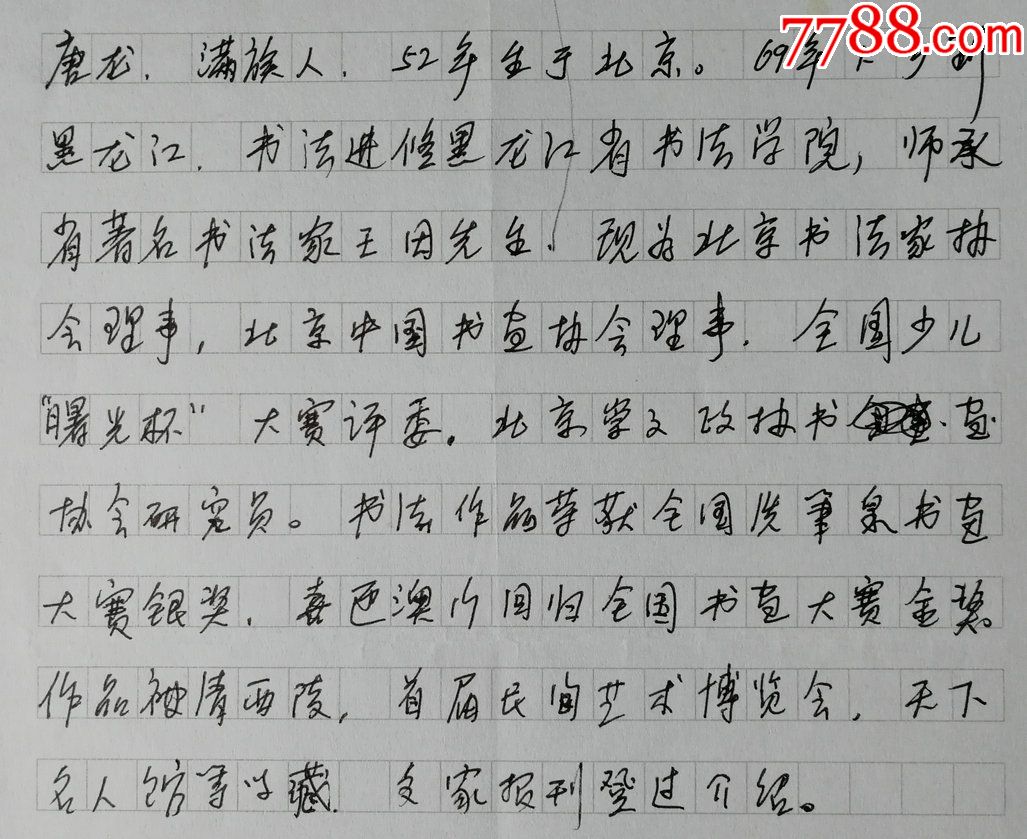 7788.com
唐龙.满族人.52年生于北京。69年下乡到
黑龙江.书法进修黑龙江省书法学院,师承
省著名书法家王田先生.现为北京书法家协
会理事,北京中国书画协会理事.全国少儿
“曙光杯”大赛评委.北京学文政协书画
协会研究员。书法作品荣获全国洗笔泉书画
大赛银奖.喜迎澳门回归全国书画大赛金奖。
作品被清西陵,首届民间艺术博览会.天下
名人馆等收藏.多家报刊登过介绍。